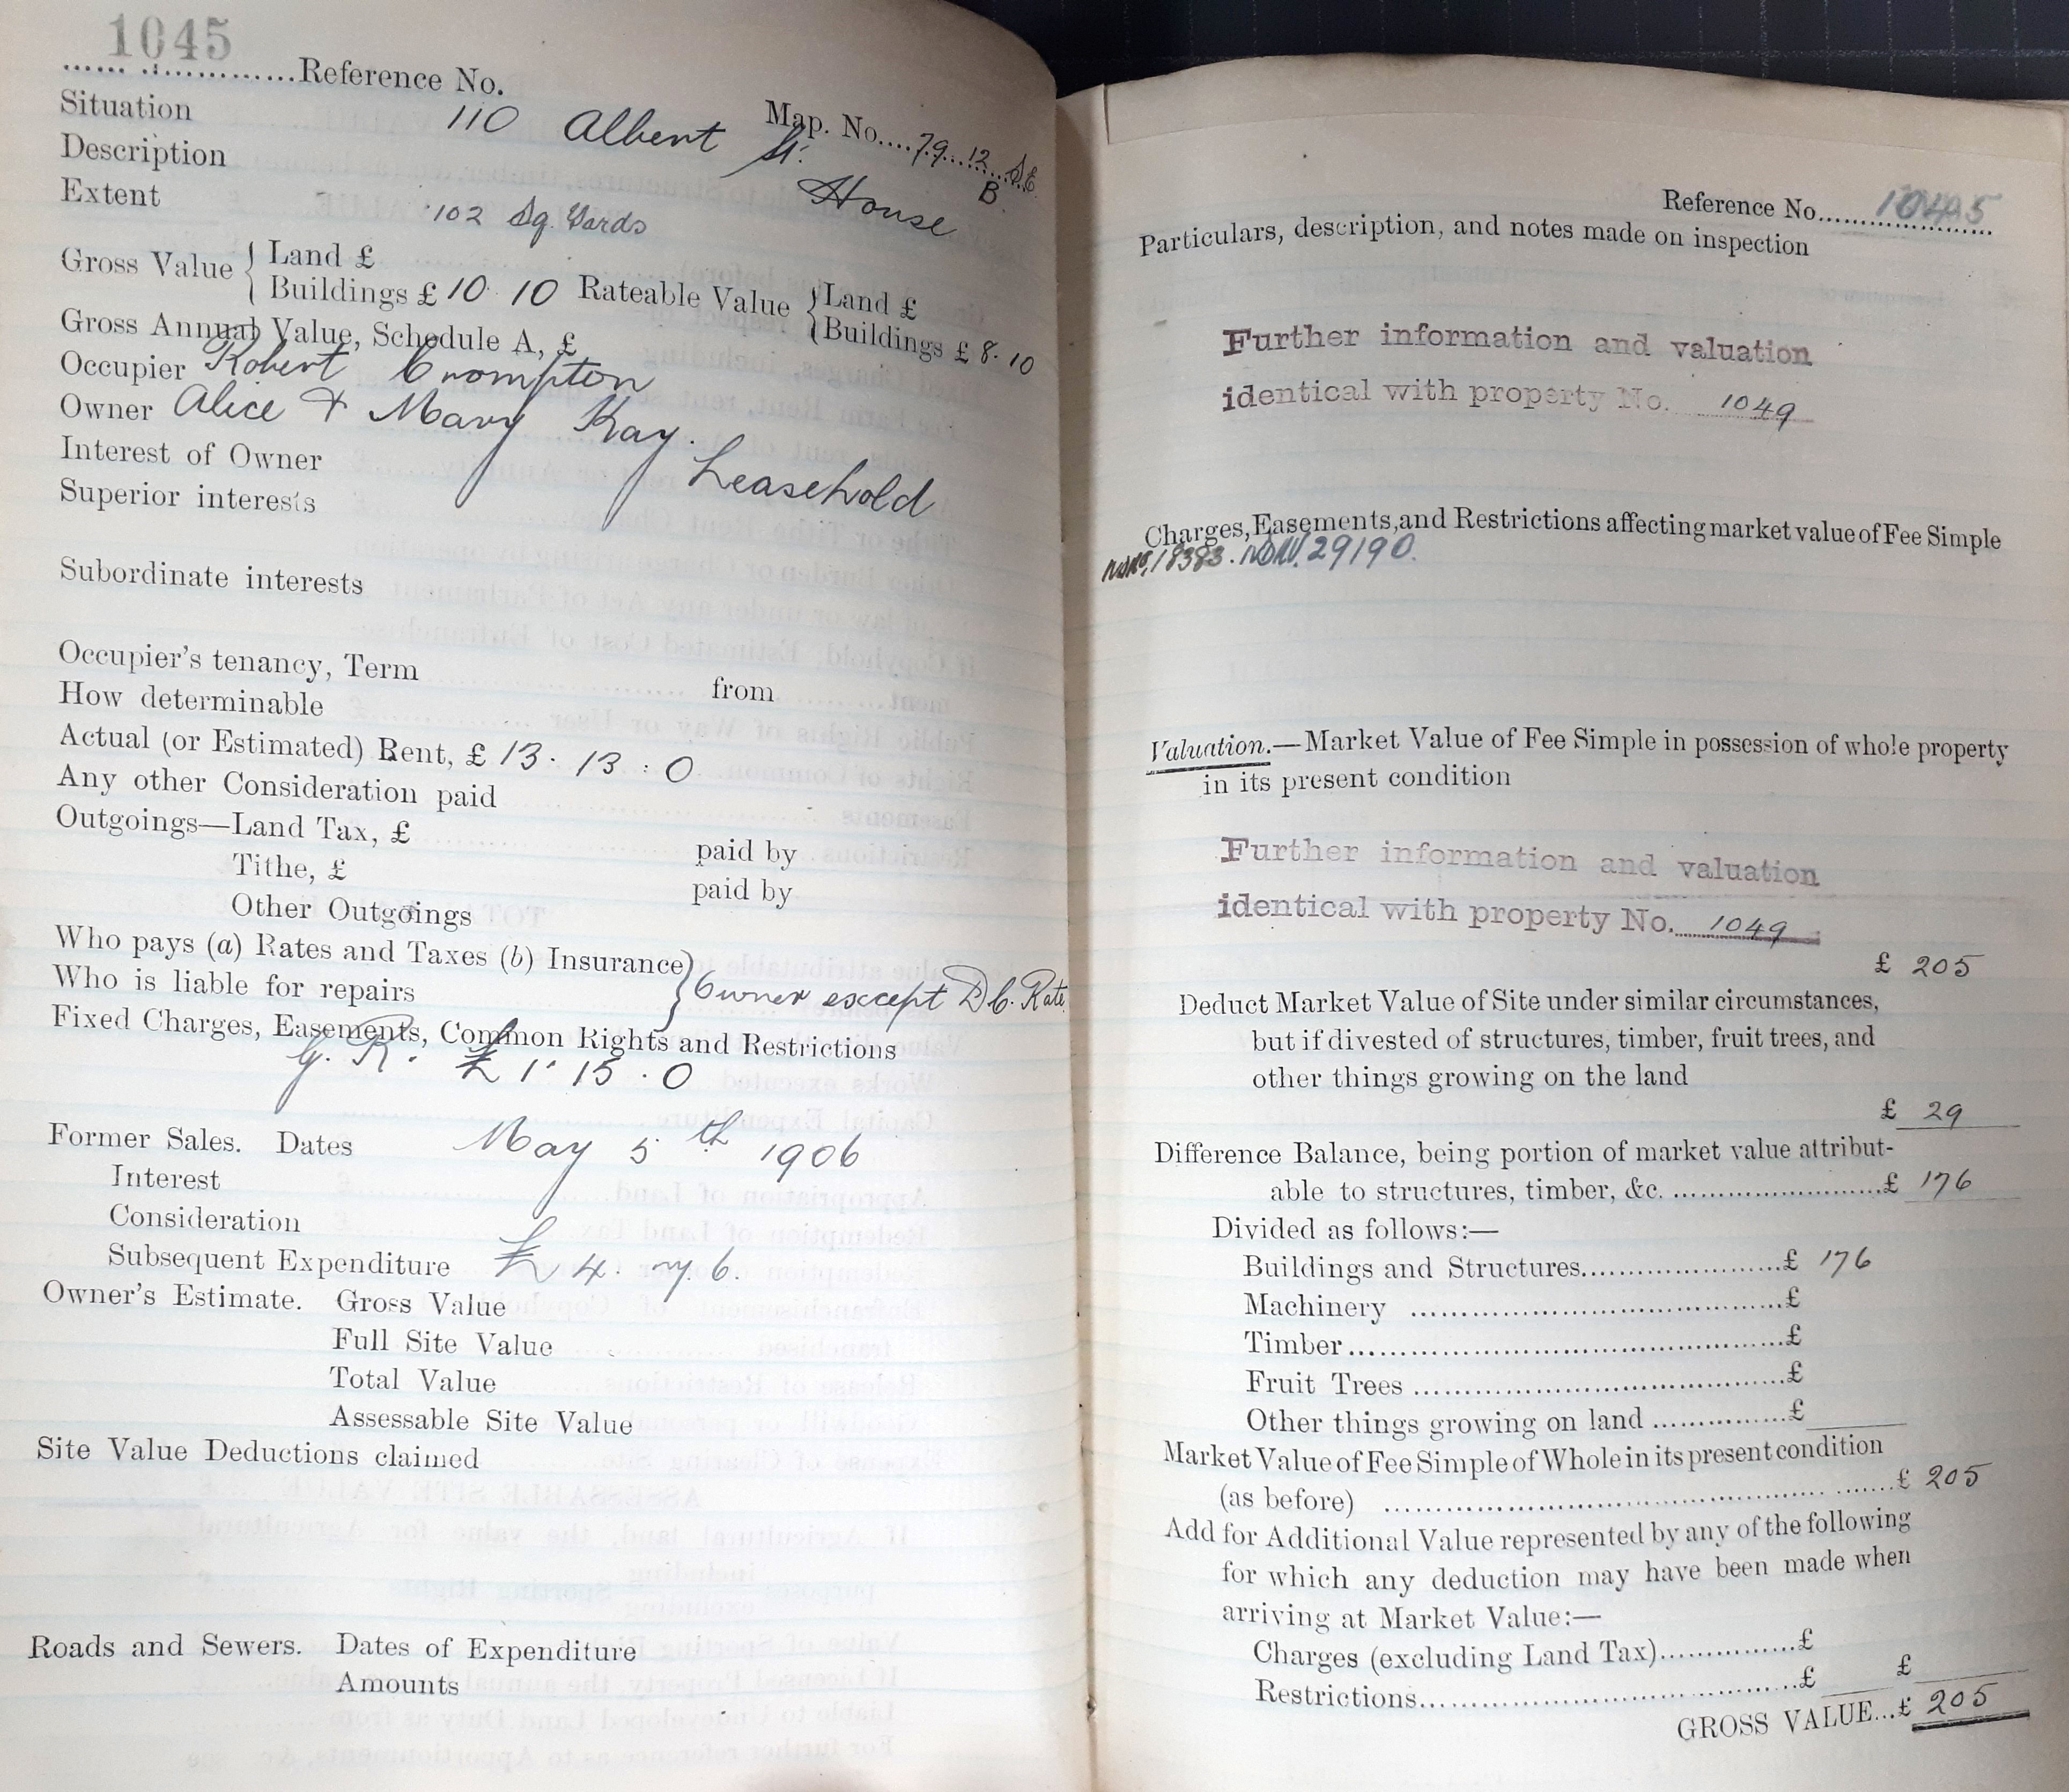 1045
Reference No.
Map. No. 79 12 SE
B
Situation 110 Albert St.
Description House
Extent 102 Sq. Yards
Gross Value { Land £
Buildings £ 10 10 Rateable Value { Land £
Buildings £ 8. 10
Gross Annual Value, Schedule A, £
Occupier Robert Crompton
Owner Alice & Mary Kay.
Interest of Owner Leasehold
Superior interests
Subordinate interests
Occupier's tenancy, Term from
How determinable
Actual (or Estimated) Rent, £ 13. 13 : 0
Any other Consideration paid
Outgoings—Land Tax, £ paid by
Tithe, £ paid by
Other Outgoings
Who pays (a) Rates and Taxes (b) Insurance }
Who is liable for repairs } Owner except D C. Rate
Fixed Charges, Easements, Common Rights and Restrictions
G. R. £ 1. 15. 0
Former Sales. Dates May 5th 1906
Interest
Consideration
Subsequent Expenditure £ 4. 7. 6.
Owner's Estimate. Gross Value
Full Site Value
Total Value
Assessable Site Value
Site Value Deductions claimed
Roads and Sewers. Dates of Expenditure
Amounts
Reference No. 1045
Particulars, description, and notes made on inspection
Further information and valuation
identical with property No. 1049
Charges, Easements, and Restrictions affecting market value of Fee Simple
18383. 29190.
Valuation.—Market Value of Fee Simple in possession of whole property
in its present condition
Further information and valuation
identical with property No. 1049
£ 205
Deduct Market Value of Site under similar circumstances,
but if divested of structures, timber, fruit trees, and
other things growing on the land
£ 29
Difference Balance, being portion of market value attribut-
able to structures, timber, &c. £ 176
Divided as follows:—
Buildings and Structures £ 176
Machinery £
Timber £
Fruit Trees £
Other things growing on land £
Market Value of Fee Simple of Whole in its present condition
(as before) £ 205
Add for Additional Value represented by any of the following
for which any deduction may have been made when
arriving at Market Value:—
Charges (excluding Land Tax) £
Restrictions £ £
GROSS VALUE...£ 205